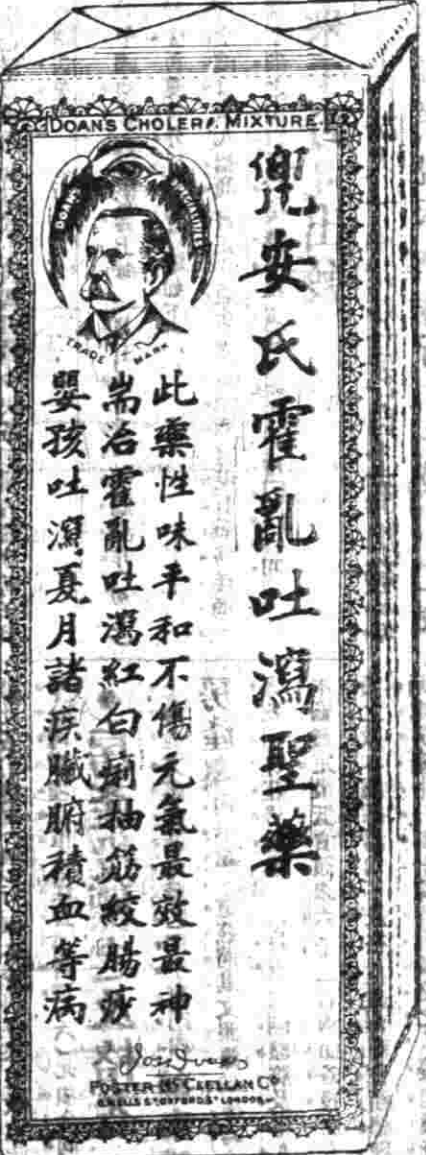 DOAN'S CHOLERA MIXTURE.
DOAN'S SPECIALITIES
TRADE MARK
兜安氏霍亂吐瀉聖藥
此藥性味平和不傷元氣最效最神
耑治霍亂吐瀉紅白痢抽筋絞腸痧
嬰孩吐瀉夏月諸疾臟腑積血等病
FOSTER McCLELLAN Co
8, WELLS ST OXFORD ST LONDON